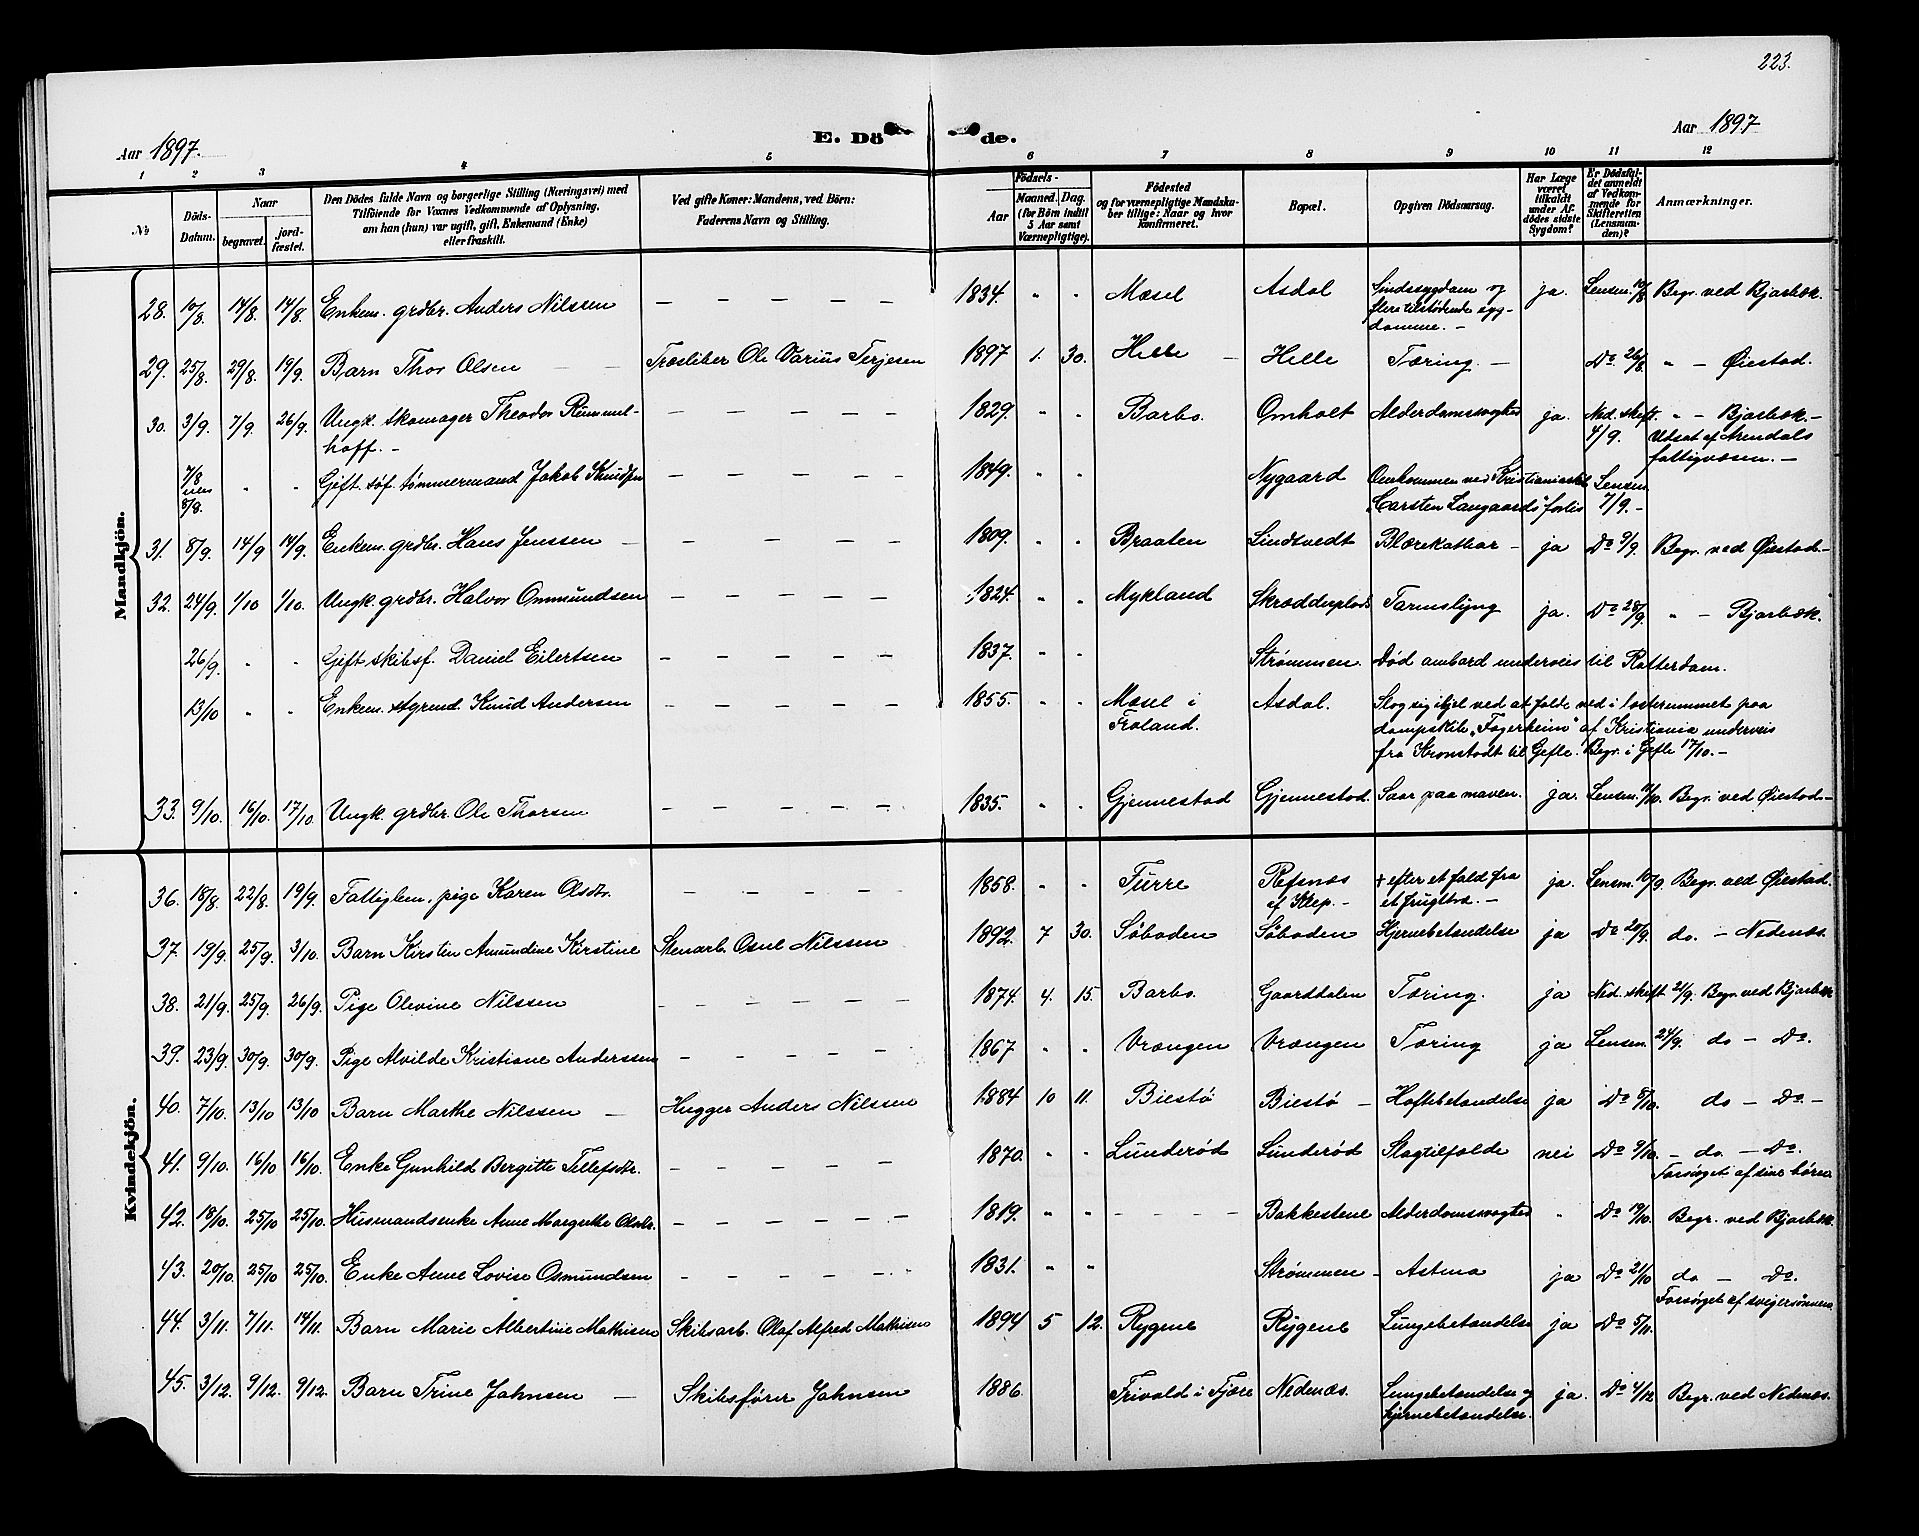 223.
Aar 1897.
E. Dö de.
Aar 1897
1 2 3 4 5 6 7 8 9 10 11 12
№
Döds-Datum.
Naar
begravet.
jordfæstet.
Den Dödes fulde Navn og borgerlige Stilling (Næringsvei) med
Tilföiende for Voxnes Vedkommende af Oplysning,
om han (hun) var ugift, gift, Enkemand (Enke)
eller fraskilt.
Ved gifte Koner: Mandens, ved Börn:
Faderens Navn og Stilling.
Födsels-
Aar
Maaned. Dag.
(for Börn indtil
5 Aar samt
Værnepligtige).
Födested
og for værnepligtige Mandskaber
tillige: Naar og hvor
konfirmeret.
Bopæl.
Opgiven Dödsaarsag.
Har Læge
været
tilkaldt
under Afdödes
sidste
Sygdom?
Er Dödsfaldet
anmeldt
af Vedkommende
for
Skifteretten
(Lensmanden)?
Anmærkninger.
Mandkjön.
28. 10/8. 14/8. 14/8. Enkem. grdbr. Anders Nilssen — — — — — 1834. " " Mæsel Asdal Sindssygdom og flere tilstødende sygdomme. — ja. Lensm. 10/8 Begr. ved Bjorbæk.
29. 25/8. 29/8. 19/9. Barn Thor Olsen — — Træsliber Ole Varius Terjesen 1897 1. 30. Helle — Helle Tæring. — Do 26/8 " — Øiestad.
30. 3/9. 7/9. 26/9. Ungk. skomager Theodor Rummelhoff. — — — — — — 1829. " " Barbo. Omholt Alderdomssvaghed ja. Ned. skift. 4/9. " — Bjorbæk — Utsat af Arendals fattigvæsen. —
7/8 8/8. " " Gift. søf. tømmermand Jakob Knudsen — — — — — 1849. " " Nygaard Omkommen ved Kristianiaskib "Carsten Langaards" forlis Lensm. 7/9. —
31. 8/9. 14/9 14/9. Enkem. grdbr. Hans Jenssen — — — — — — 1809. " " Braaten Lindtvedt Blærekathar — ja Do 9/9. Begr. ved Øiestad. —
32. 24/9. 1/10 1/10. Ungk. grdbr. Halvor Ommundsen — — — — — 1824. " " Mykland Skrædderplads Tarmslyng ja. Do 28/9. " — Bjorbæk.
26/9. " " Gift skibsf. Daniel Eilertsen — — — — — 1837. " " Strømmen. Død ombord underveis til Rotterdam.
13/10 " " Enkem. styrmd. Knud Andersen — — — — — 1855. " " Mæsel i Froland. Asdal. Slog sig ihjel ved at falde ned i lasterummet paa dampskib "Fagerheim" af Kristiania underveis fra Kronstadt til Gefle. Begr. i Gefle 17/10. —
33. 9/10. 16/10. 17/10. Ungk. grdbr. Ole Thorsen — — — — — 1835. " " Gjennestad Gjennestad. Saar paa maven. ja. Lensm. 11/10. Begr. ved Øiestad —
Kvindekjön.
36. 18/8. 22/8. 19/9. Fattiglem, pige Karen Olsdtr. — — — — — 1858. " " Furre Refsnæs af Klep. — + efter et fald fra et frugttræ. — ja. Lensm. 10/9. Begr. ved Øiestad.
37. 19/9. 25/9. 3/10. Barn Kirsten Amundine Kirstine Stenarb. Osul Nilssen 1892. 7 30. Søboden Søboden Hjernebetændelse ja Do 20/9. do. — Nedenæs.
38. 21/9. 25/9. 26/9. Pige Olevine Nilssen — — — — — 1874. 4. 15. Barbo. Gaarddalen Tæring. ja Ned. skift 21/9. Begr. ved Bjorbæk
39. 23/9. 30/9. 30/9. Pige Alvilde Kristiane Anderssen — — — — — 1867 " " Vrængen Vrængen Tæring ja Lensm. 24/9. do — Do.
40. 7/10. 13/10 13/10 Barn Marthe Nilssen — Hugger Anders Nilssen 1884 10 11. Biestø Biestø — Hoftebetændelse ja Do 8/10. do — Do. —
41. 9/10. 16/10 16/10. Enke Gunhild Bergitte Tellefsdtr. — — — — — 1870. " " Lunderød Lunderød Slagtilfælde nei Do 9/10. — do. — Do Forsørget af sine børn
42. 18/10. 25/10 25/10. Husmandsenke Anne Margrethe Olsdtr. — — — — — 1819. " " — — — — Bakkestene Alderdomssvaghed " Do 19/10. Begr. ved Bjorbæk.
43. 20/10. 25/10 25/10. Enke Anne Lovise Osmundsen — — — — — 1831. " " Strømmen — Astma ja Do 21/10 do — Do. Forsørget af svigersønnen
44. 3/11. 7/11. 14/11. Barn Marie Albertine Mathisen Skibsarb. Olaf Alfred Mathisen 1894 5 12. Rygene Rygene Lungebetændelse ja Do 5/11.
45. 3/12. 9/12. 9/12. Barn Trine Johnsen — Skibsfører Johnsen 1886. Trivold i Tjøse Nedenæs. Lungebetændelse og hjernebetændelse. ja. Do 4/12 Begr. ved Nedenæs.